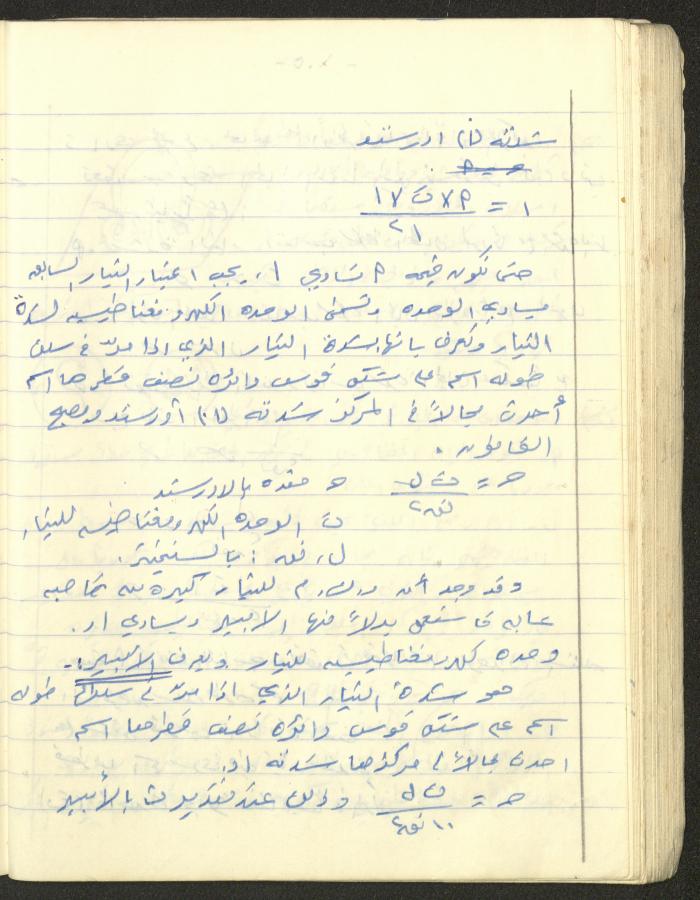 شدته (١) اورستد
١ = م × ت × ١ / ١٢
حتى تكون قيمة م تساوي ١، يجب اعتبار التيار السابق
يساوي الوحده وتسمى الوحده الكهرومغناطيسيه لشدة
التيار وتعرف بانها شدة التيار الذي اذا مرّ في سلك
طوله اسم على شكل قوس دائره نصف قطرها اسم
أحدث مجالاً في المركز شدته (١) أورستد ويصبح
القانون .
ح = ت ل / نق٢ ح مقدره بالاورستد
ت الوحده الكهرومغناطيسيه للتيار
ل، نق : بالسنتيمتر .
وقد وجد أن و.ك.م للتيار كبيره من ناحيه
عمليه فاستعمل بدلاً منها الامبير ويساوي ٠,١
وحده كهرومغناطيسيه للتيار ويعرف الامبير :-
هو شدة التيار الذي اذا مرّ في سلك طوله
اسم على شكل قوس دائره نصف قطرها اسم
احدث مجالاً في مركزها شدته ٠,١
ح = ت ل / ١٠ نق٢ وذلك عند تقدير ت بالأمبير